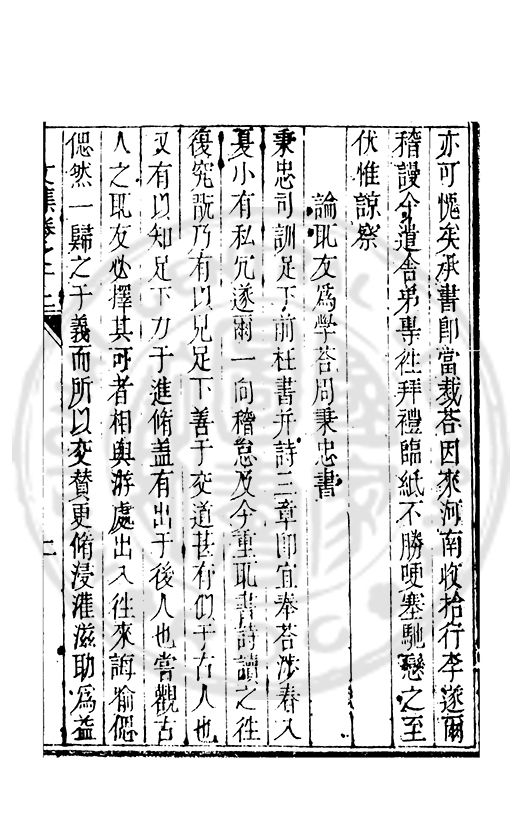 亦可愧矣承書卽當裁荅因來河南收拾行李遂爾
稽謾今遣舍弟專徃拜禮臨紙不勝哽塞馳戀之至
伏惟諒察
論取友爲學荅周秉忠書
秉忠司訓足下前枉書并詩三章卽宜奉荅涉春入
夏小有私冗遂爾一向稽怠及今重取書詩讀之徃
復究翫乃有以見足下善于交道甚有似于古人也
又有以知足下力于進脩盖有出于後人也嘗觀古
人之取友必擇其可者相與游處出入徃來誨喻偲
偲然一歸之于義而所以交賛更脩浸灌滋助爲益
文集卷之十二